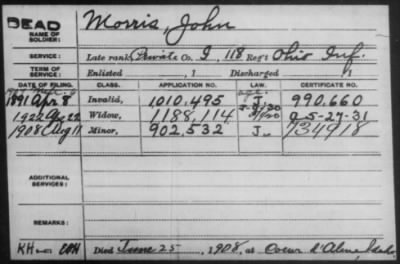 DEAD
NAME OF SOLDIER: Morris, John
SERVICE: Late rank, Private Co. I, 118 Reg't Ohio Inf.
TERM OF SERVICE: Enlisted , 1 Discharged , 1
DATE OF FILING. CLASS. APPLICATION NO. LAW. CERTIFICATE NO.
1891 Apr 8 Invalid, 1010,495 J. 990,660
1922 22 Widow, 1188,114 5-27-31
1908 Aug 11 Minor, 902,532 J 734918
ADDITIONAL SERVICES:
REMARKS:
KH Died June 25, 1908, at Coeur d'Alene, Idaho